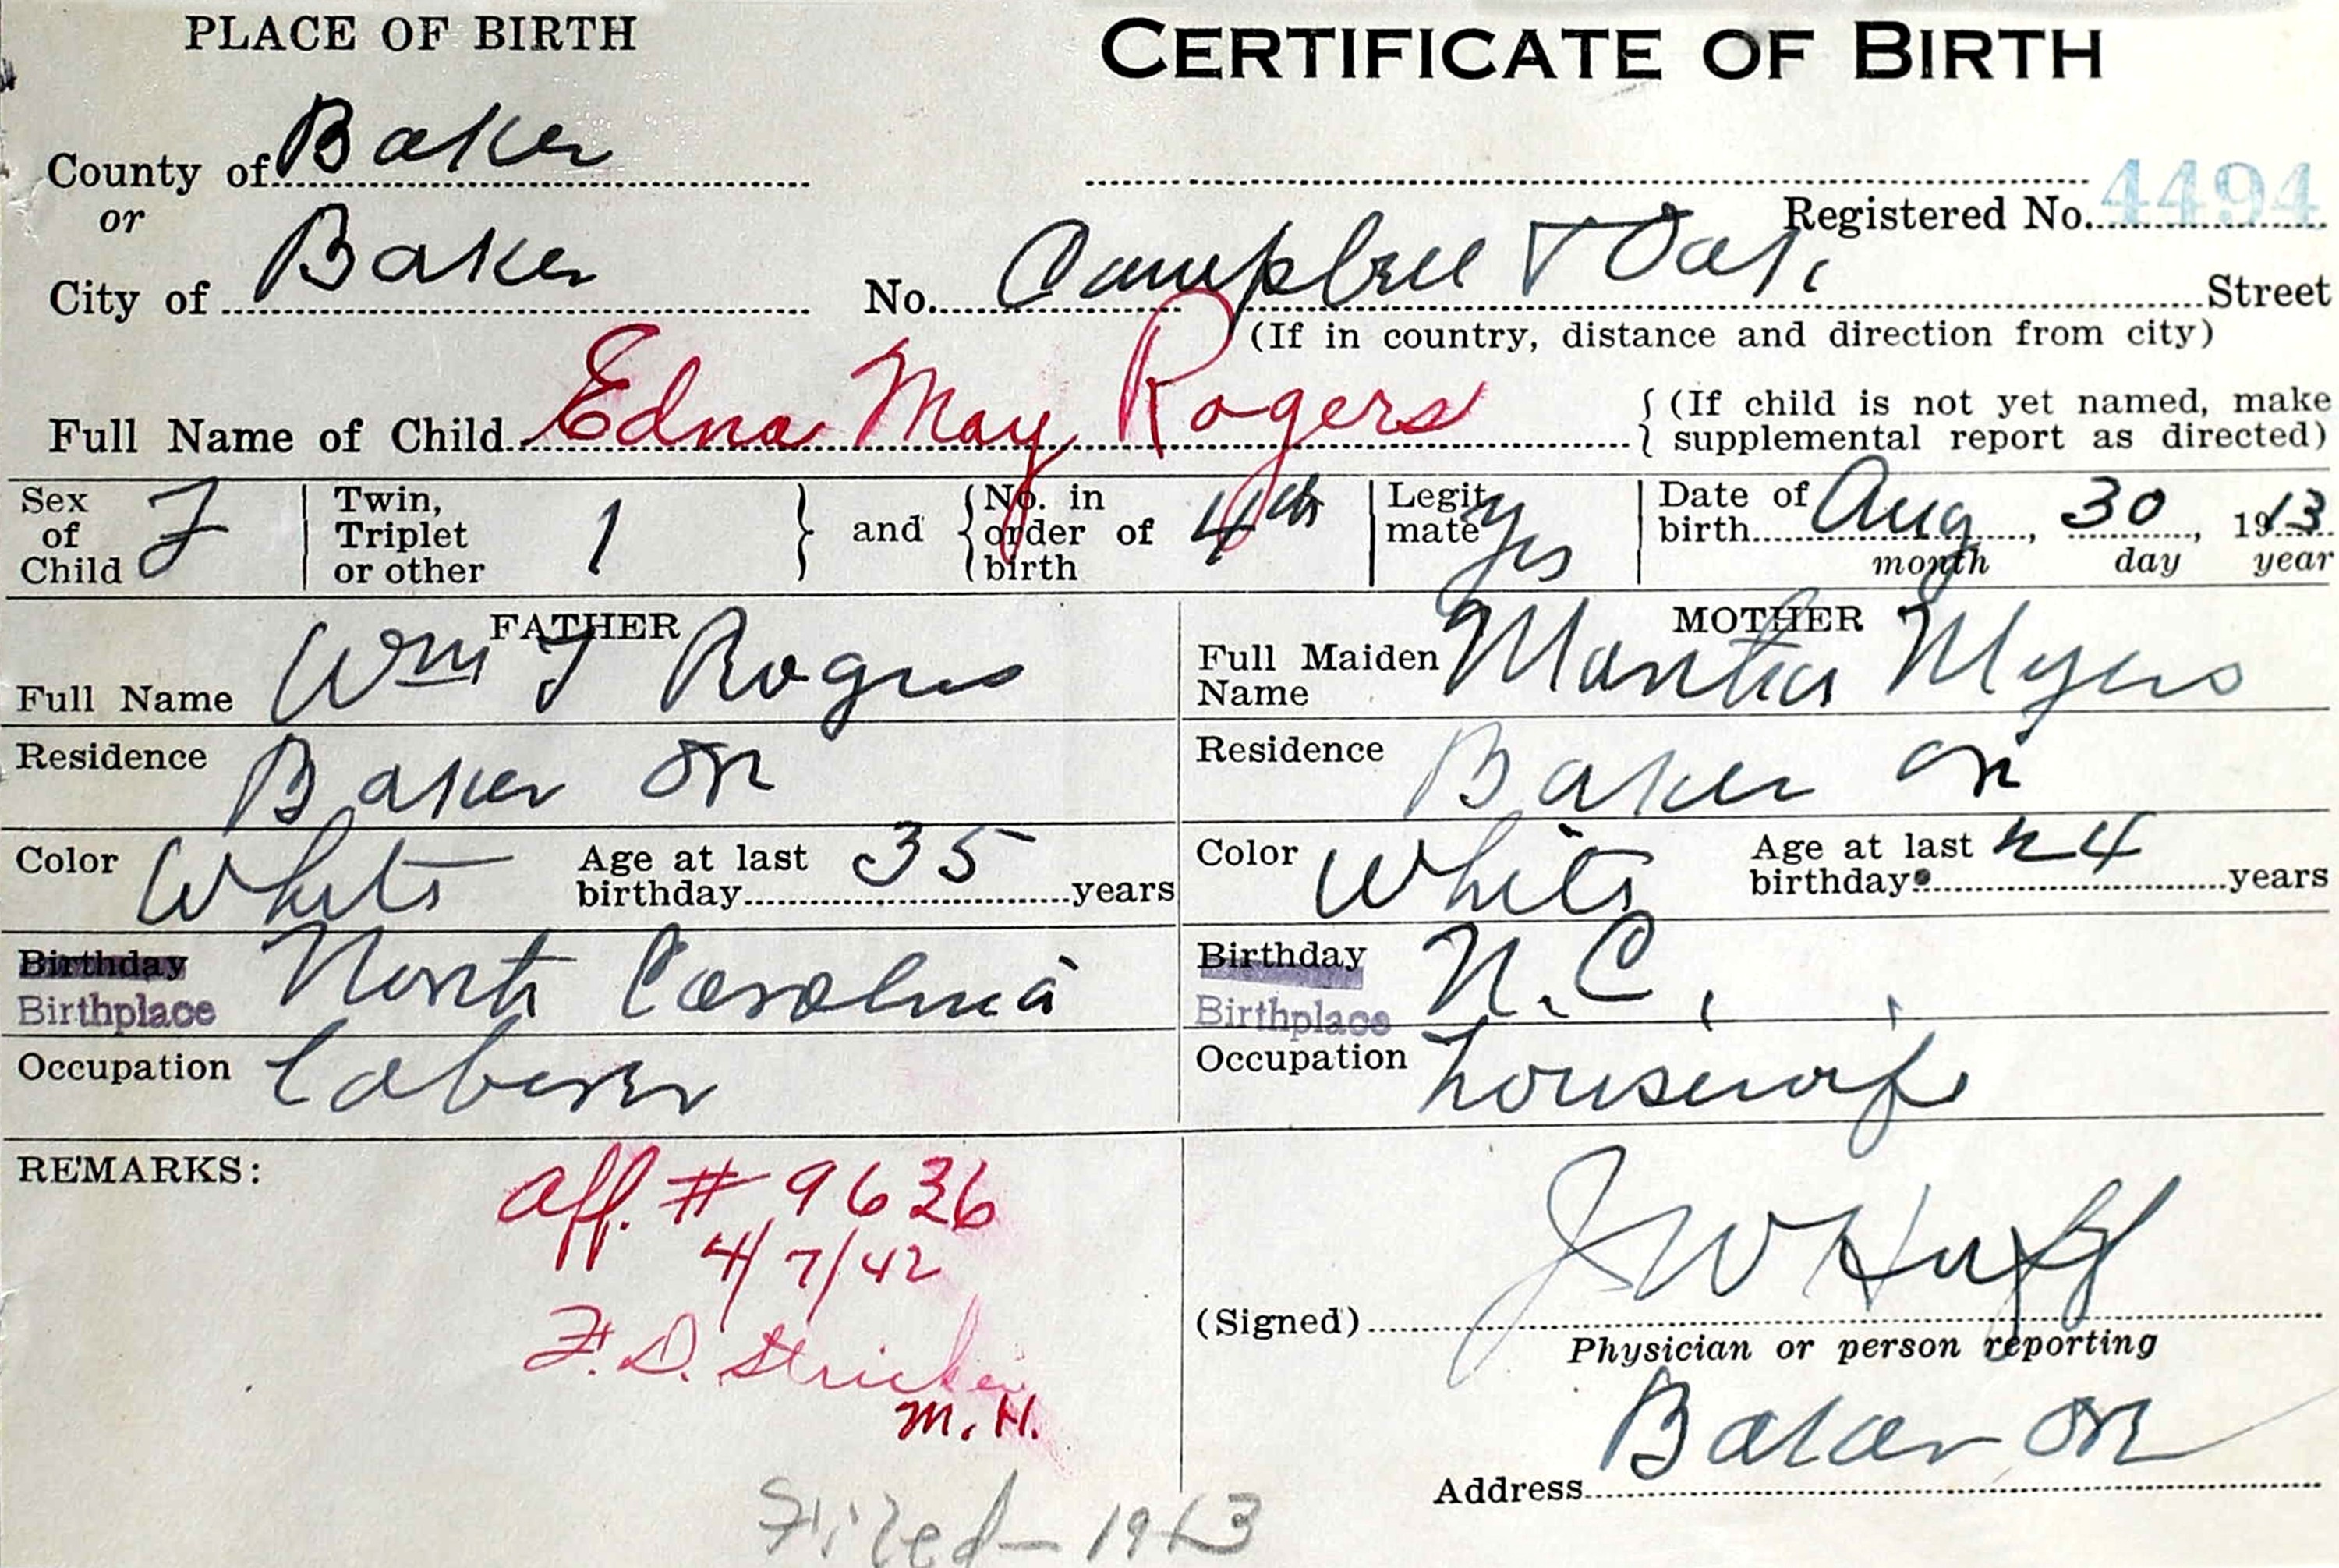 PLACE OF BIRTH
CERTIFICATE OF BIRTH
County of Baker
or
Registered No. 4494
City of Baker
No. Campbell + Oak Street
(If in country, distance and direction from city)
Full Name of Child Edna May Rogers
(If child is not yet named, make
supplemental report as directed)
Sex
of
Child F
Twin,
Triplet
or other 1
and
No. in
order of
birth 4th
Legit
mate yes
Date of
birth Aug, 30, 1913
month day year
FATHER
Full Name Wm T Rogers
Residence Baker Or
Color White
Age at last
birthday 35 years
Birthday
Birthplace North Carolina
Occupation Laborer
MOTHER
Full Maiden
Name Martha Myers
Residence Baker Or
Color White
Age at last
birthday 24 years
Birthday
Birthplace N.C.
Occupation housewife
REMARKS:
Aff. # 9636
4/7/42
F. D. Stricker
M. H.
(Signed) J W Huff
Physician or person reporting
Address Baker Or
Filed - 1913